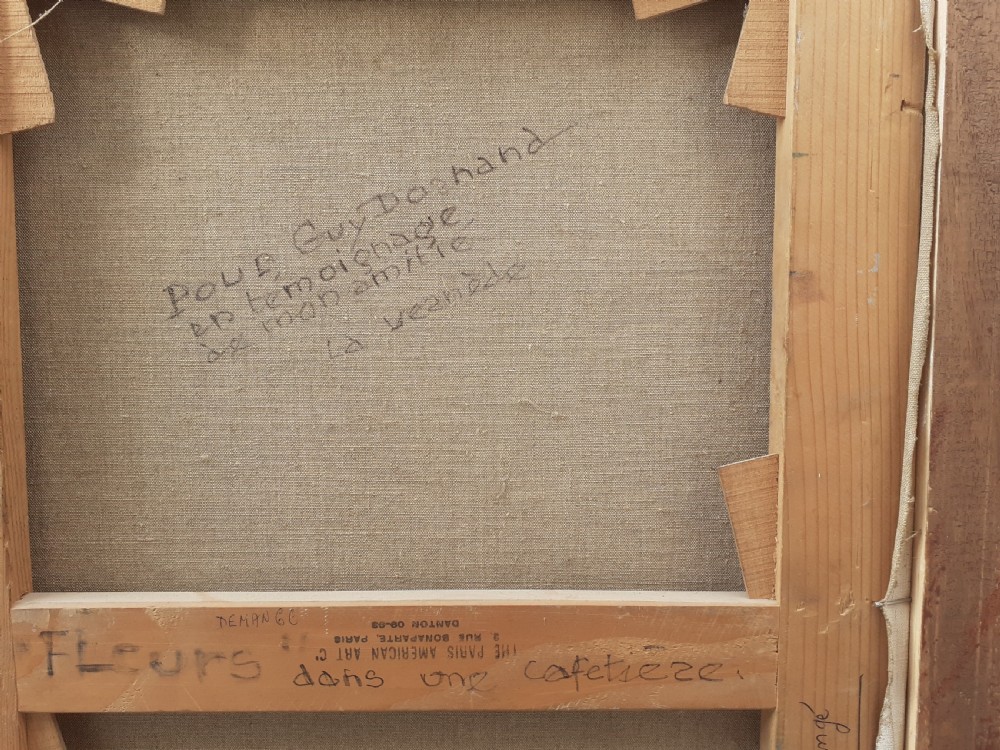 Pour Guy Dornand
en temoignage
de mon amitié
La vernède
DEMANGE
THE PARIS AMERICAN ART Cº
2 RUE BONAPARTE, PARIS
DANTON 09-93
"FLeurs"
dans une cafetieze.
ngé